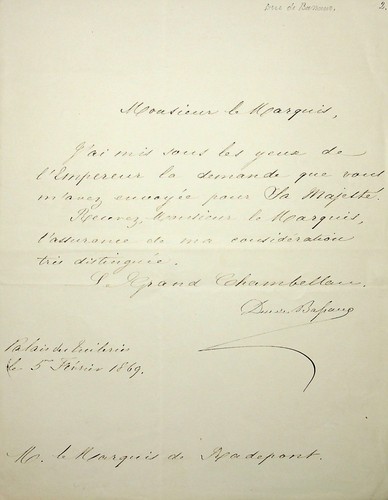 Duc de Bassano.
2.
Monsieur le Marquis,
J'ai mis sous les yeux de
l'Empereur la demande que vous
m'avez envoyée pour Sa Majesté.
Recevez, Monsieur le Marquis,
l'assurance de ma considération
très distinguée.
Le Grand Chambellan.
Duc de Bassano
Palais des Tuileries
le 5 Février 1869.
M. le Marquis de Radepont.